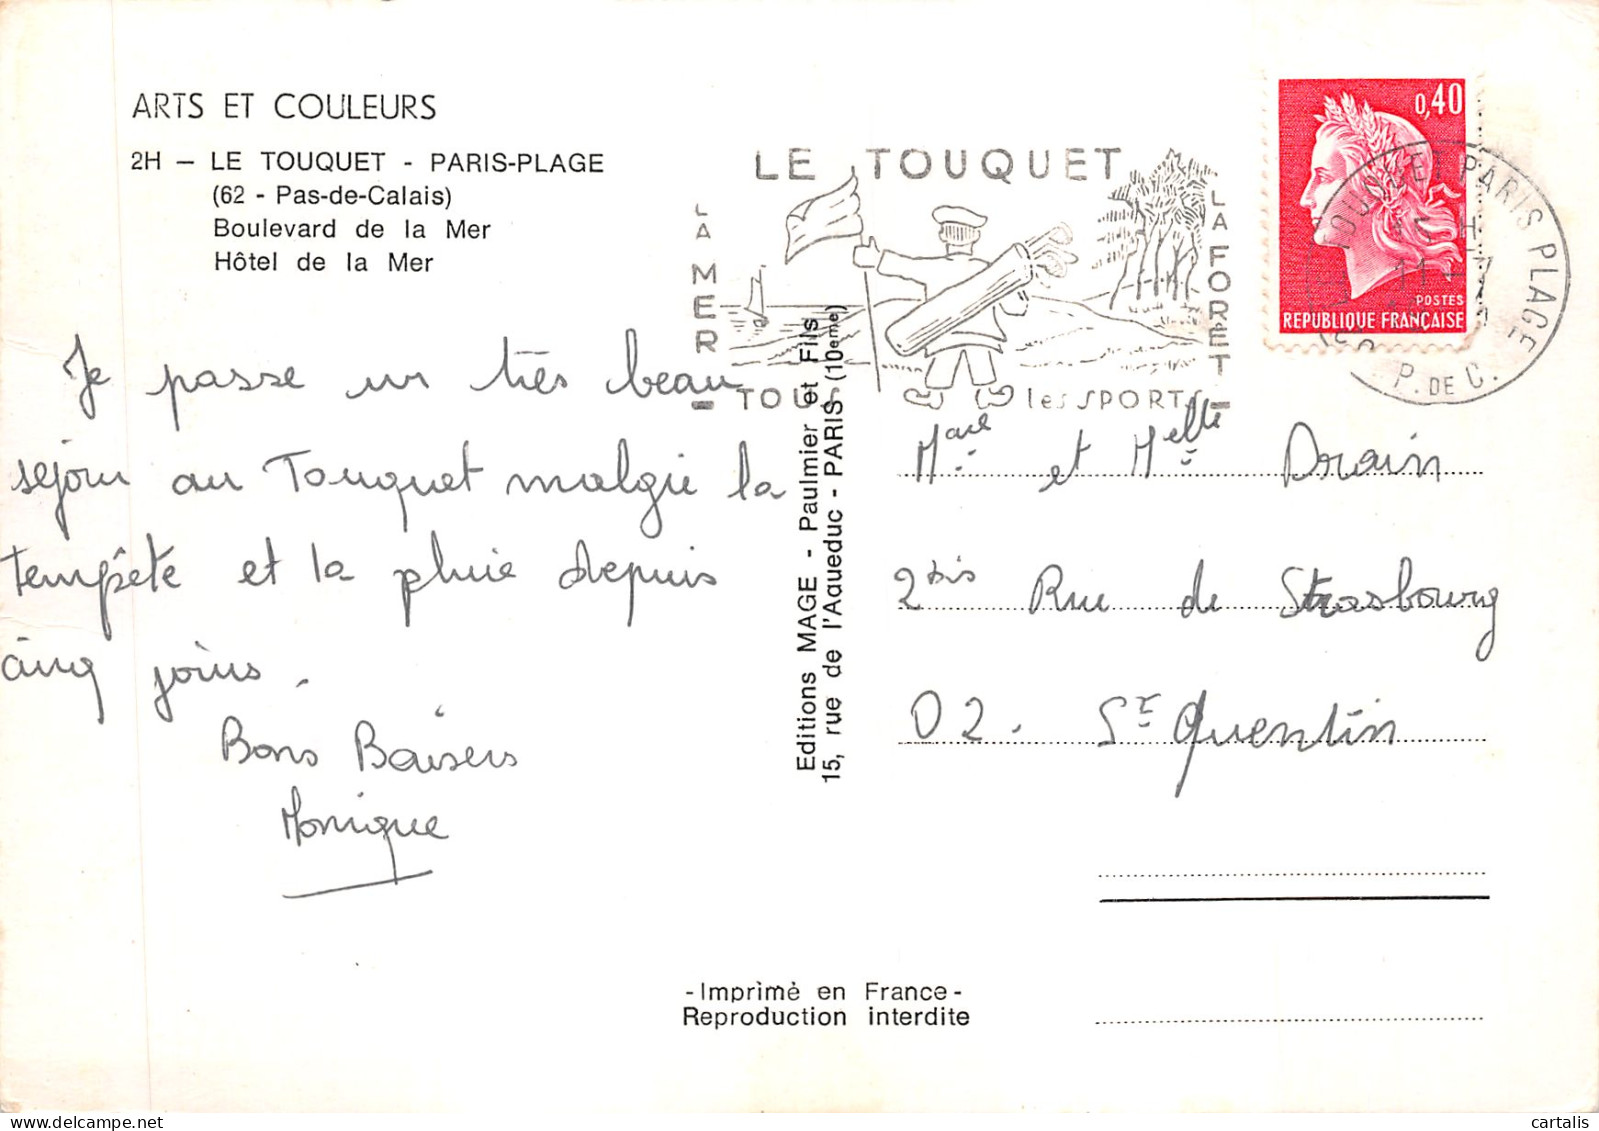 ARTS ET COULEURS
2H — LE TOUQUET - PARIS-PLAGE
(62 - Pas-de-Calais)
Boulevard de la Mer
Hôtel de la Mer
Je passe un très beau
séjour au Touquet malgré la
tempête et la pluie depuis
cinq jours.
Bons Baisers
Monique
LE TOUQUET
LA MER
LA FORET
TOUS les SPORTS
0,40
POSTES
REPUBLIQUE FRANÇAISE
TOUQUET PARIS PLAGE
11 - 7
P. DE C.
Editions MAGE - Paulmier et Fils
15, rue de l'Aqueduc - PARIS (10eme)
et Melle Drain
2bis Rue de Strasbourg
02. St Quentin
- Imprimé en France -
Reproduction interdite
cartalis